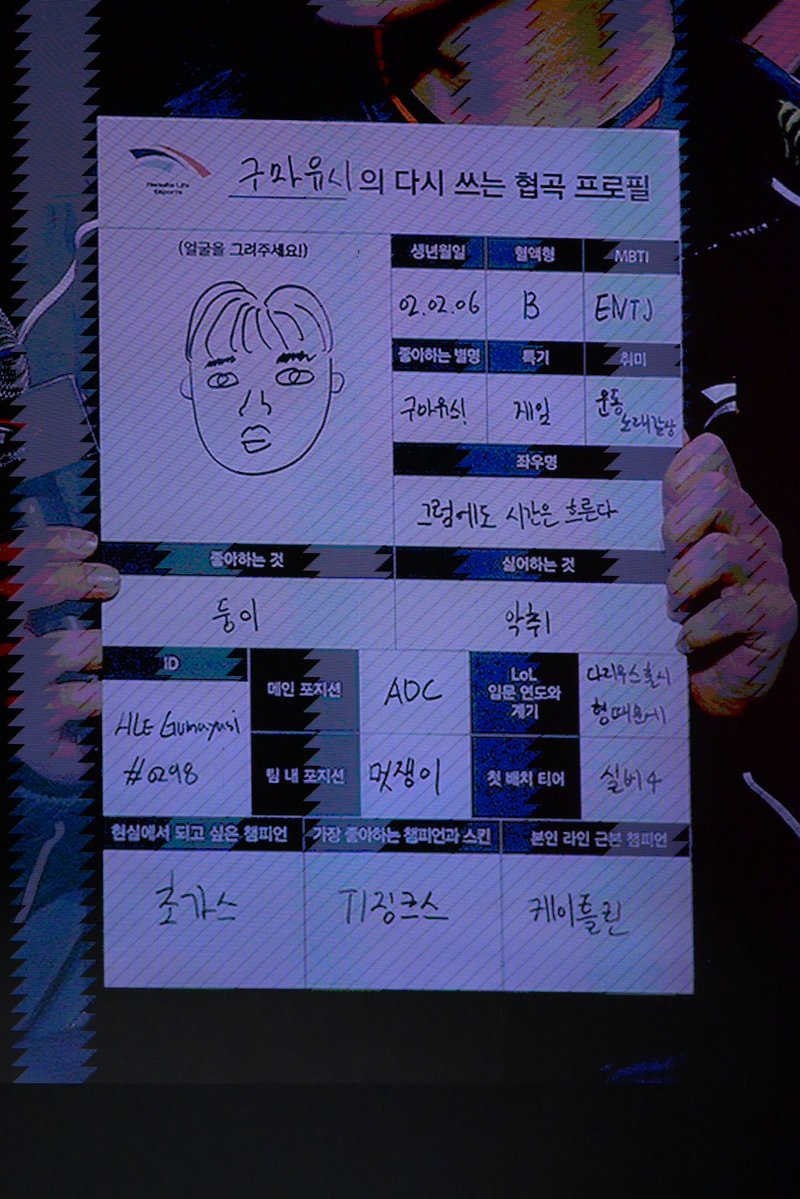 Hanwha Life
Esports
구마유시의 다시 쓰는 협곡 프로필
(얼굴을 그려주세요!)
생년월일 혈액형 MBTI
02.02.06 B ENTJ
좋아하는 별명 특기 취미
구마유시! 게임 운동
노래감상
좌우명
그럼에도 시간은 흐른다
좋아하는 것 싫어하는 것
둥이 악취
ID
HLE Gumayusi
#0298
메인 포지션
ADC
LoL
입문 연도와
계기
다리우스출시
형때문에
팀 내 포지션
멋쟁이
첫 배치 티어
실버4
현실에서 되고 싶은 챔피언 가장 좋아하는 챔피언과 스킨 본인 라인 근본 챔피언
초가스 T1징크스 케이틀린